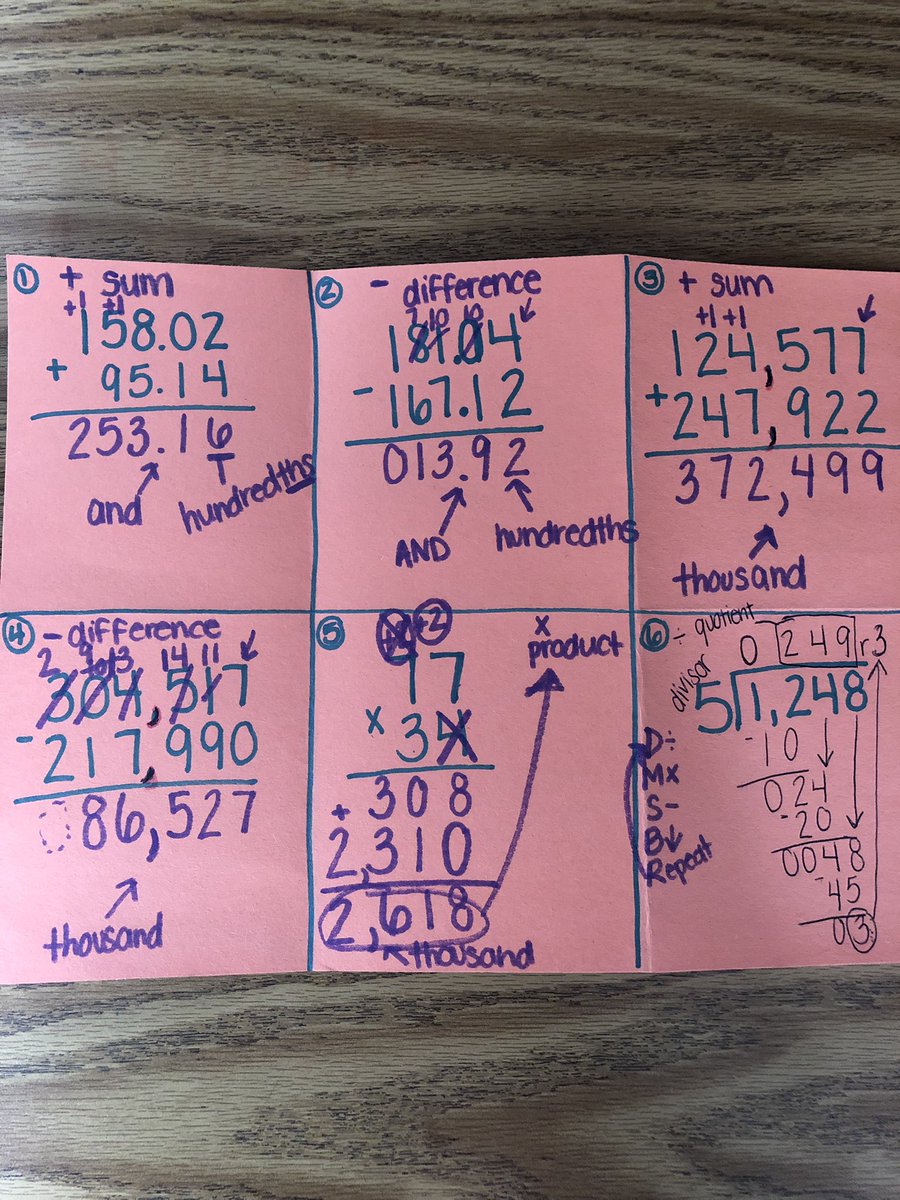 ① + sum
+1 +1
158.02
+ 95.14
253.16
and hundredths
② - difference
7 10 10
181.04
- 167.12
013.92
AND hundredths
③ + sum
+1 +1
124,577
+ 247,922
372,499
thousand
④ - difference
2 9 13 14 11
304,517
- 217,990
86,527
thousand
⑤ +2 x
77 product
x 34
+ 308
2,310
2,618
thousand
⑥ ÷ quotient
divisor 0 249 r3
5 1,248
D÷ -10
Mx 024
S- -20
B↓ 0048
Repeat -45
03